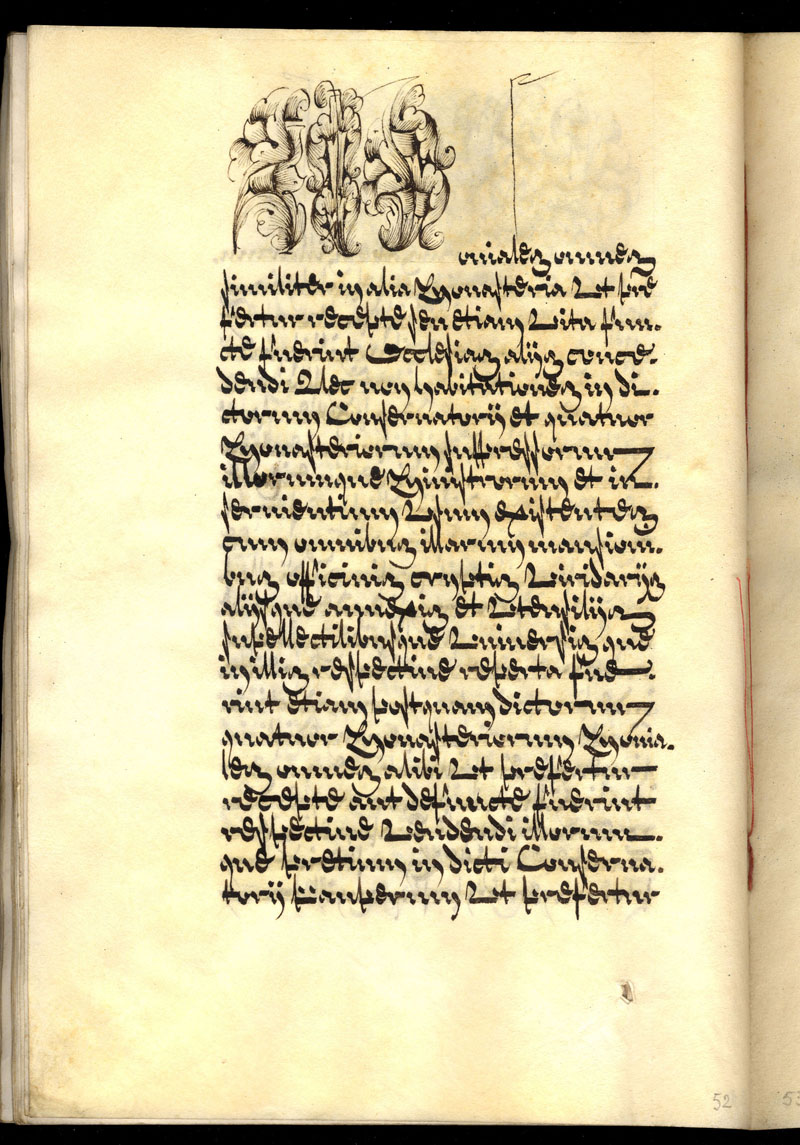 M oniales omnes
similiter in alia Monasteria Ut pre
fertur recepte seu etiam Vita fun.
cte fuerint Ecclesias alijs conce.
dendi Nec non habitationes in di.
ctorum Conservatorij et quatuor
Monasteriorum suppressorum
illorumque Ministrorum et in.
servientium Usum existentes
cum omnibus illarum mansioni.
bus officinis cryptis Viridarijs
alijsque annexis et Utensilijs
supellectilibusque Universis que
in illis respective reperta fue
rint etiam postquam dictorum
quatuor Monasteriorum Monia.
les omnes alibi Ut prefertur
recepte aut defuncte fuerint
respective Vendendi illorum.
que pretium in dicti Conserva.
torij Pauperum Ut prefertur
52
53